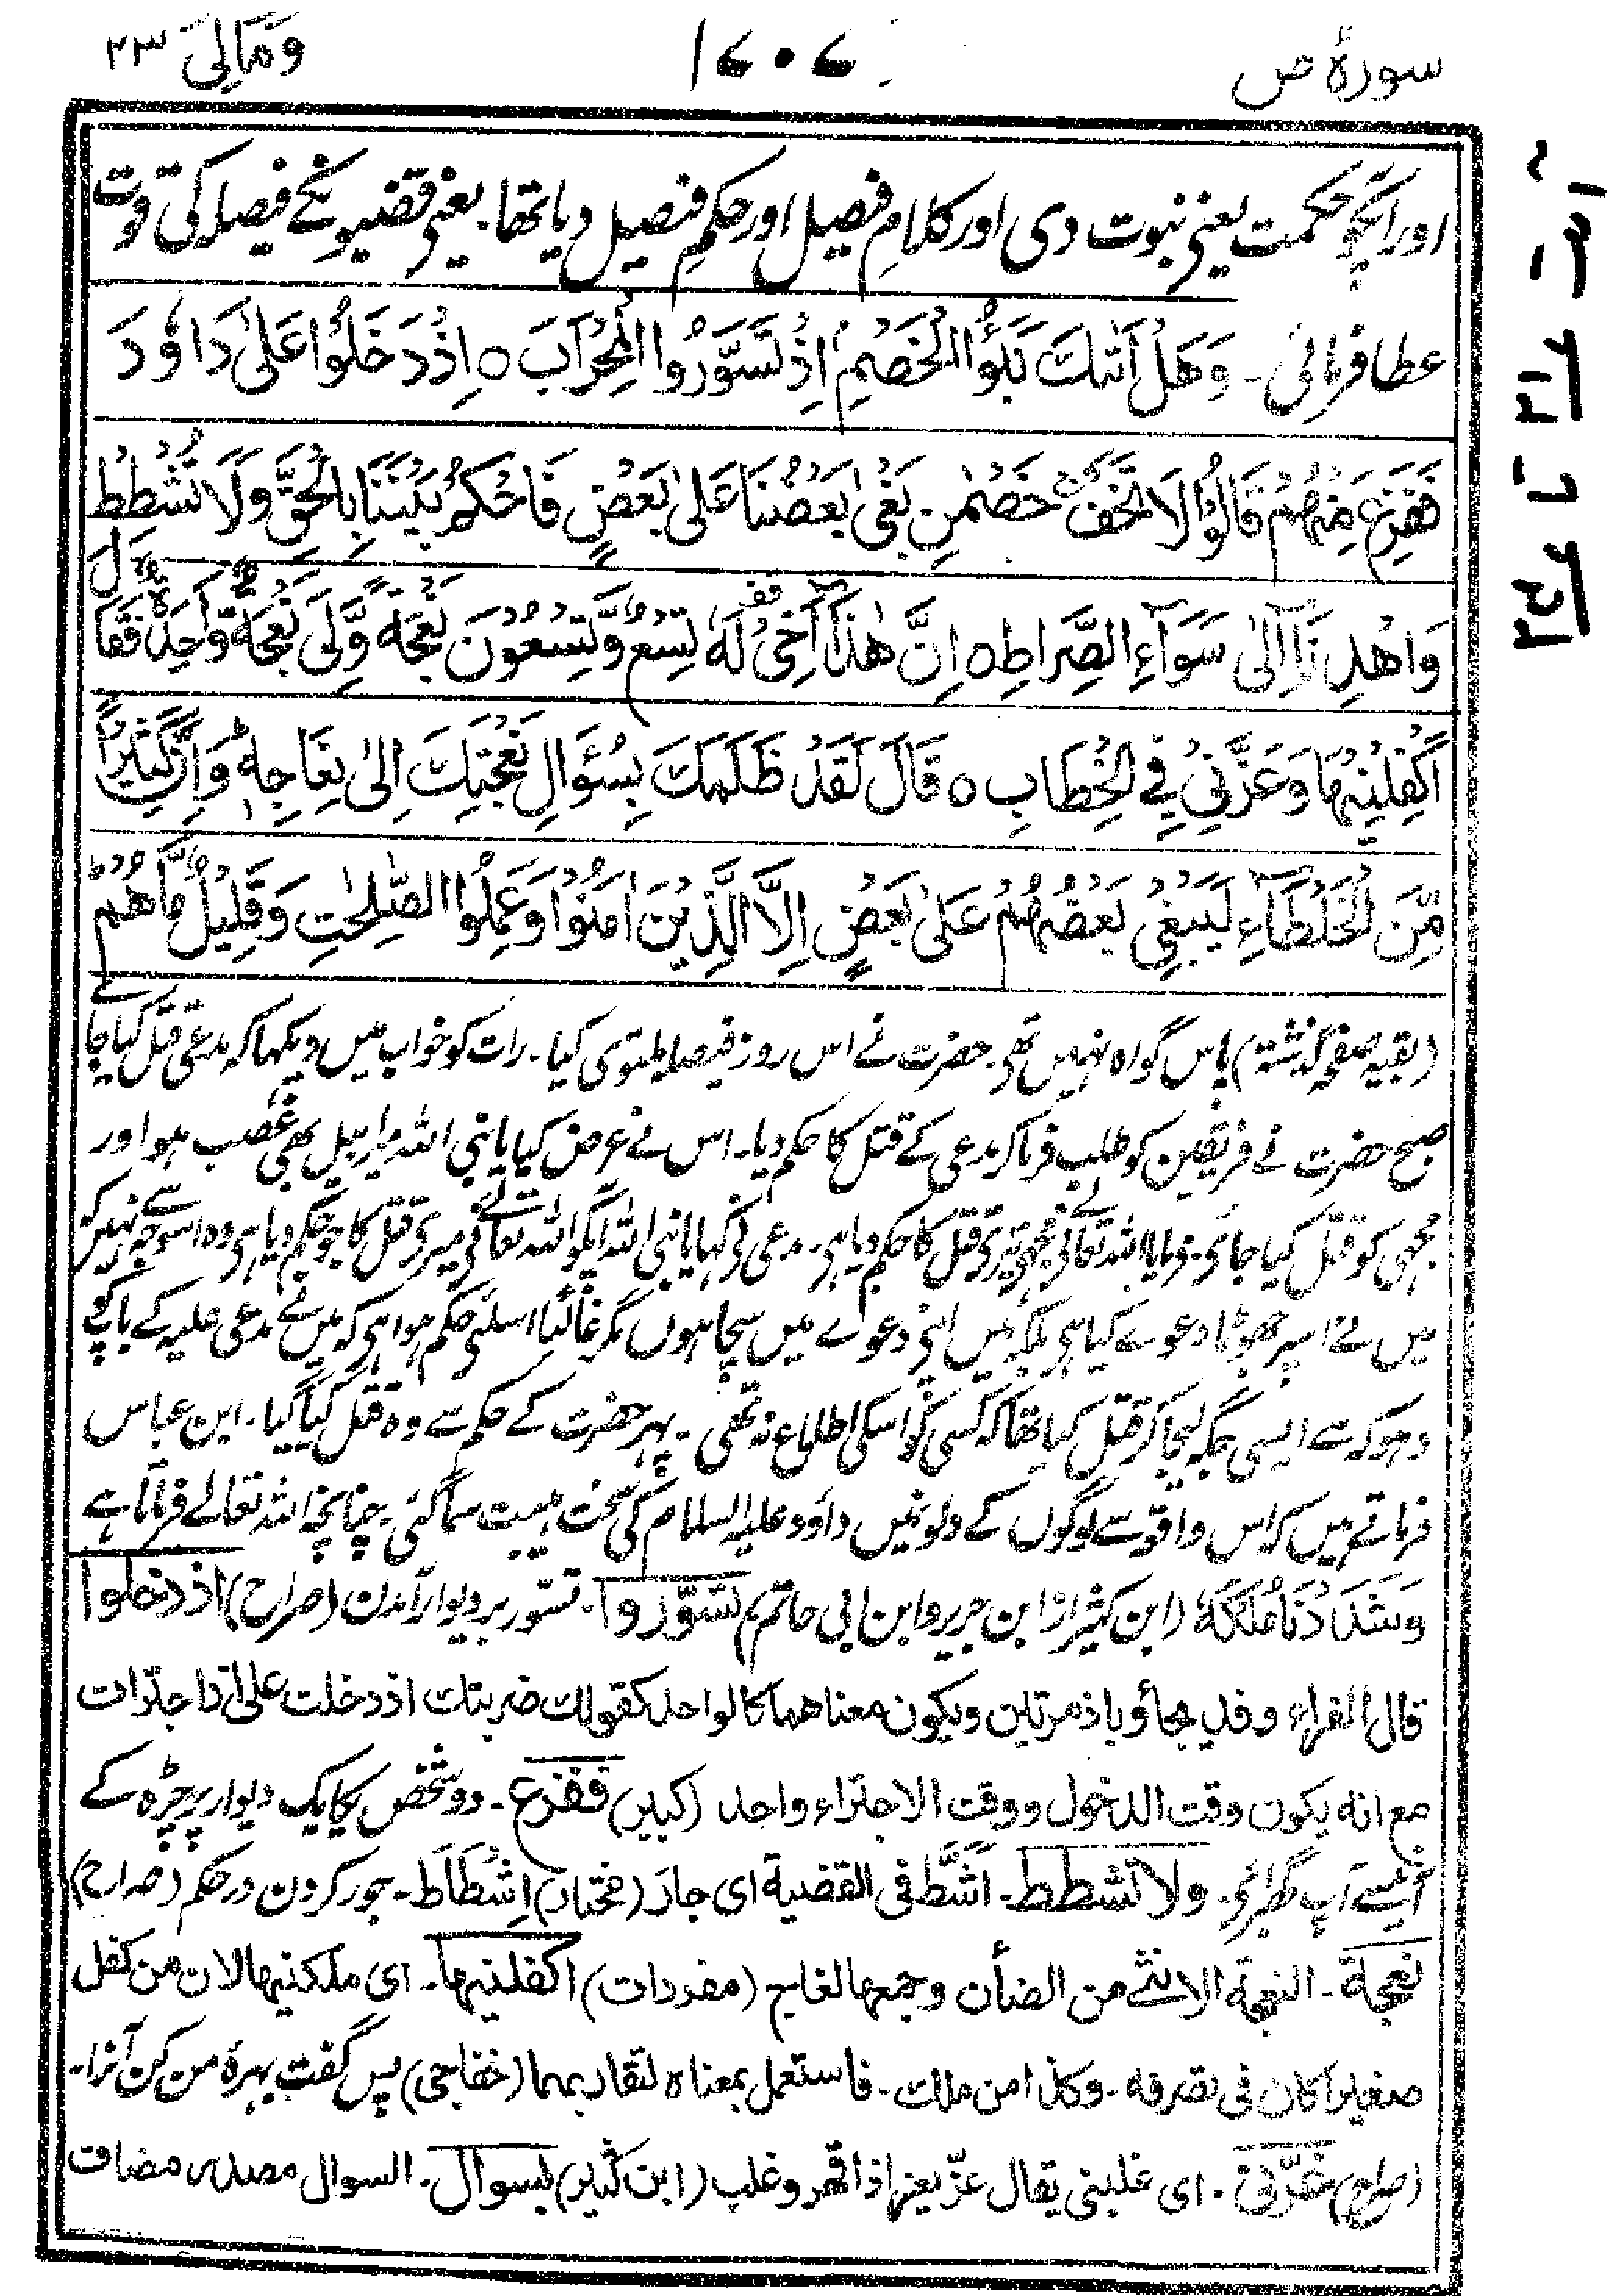 سورۂ ص
۱۷۰۷
وَمَالِیَ ۲۳
اور انکو حکمت یعنی نبوت دی اور کلامِ فیصل اور حکمِ فیصل دیا تھا۔ یعنی قضیونکے فیصلہ کی قوت
عطا فرمائی۔ وَهَلْ اَتٰىكَ نَبَؤُا الْخَصْمِۘ اِذْ تَسَوَّرُوا الْمِحْرَابَ ○ اِذْ دَخَلُوْا عَلٰى دَاوٗدَ
فَفَزِعَ مِنْهُمْ قَالُوْا لَا تَخَفْۚ خَصْمٰنِ بَغٰى بَعْضُنَا عَلٰى بَعْضٍ فَاحْكُمْ بَيْنَنَا بِالْحَقِّ وَلَا تُشْطِطْ
وَاهْدِنَآ اِلٰى سَوَآءِ الصِّرَاطِ ○ اِنَّ هٰذَآ اَخِىْ لَهٗ تِسْعٌ وَّتِسْعُوْنَ نَعْجَةً وَّلِىَ نَعْجَةٌ وَّاحِدَةٌ فَقَالَ
اَكْفِلْنِيْهَا وَعَزَّنِىْ فِى الْخِطَابِ ○ قَالَ لَقَدْ ظَلَمَكَ بِسُؤَالِ نَعْجَتِكَ اِلٰى نِعَاجِهٖ وَاِنَّ كَثِيْرًا
مِّنَ الْخُلَطَآءِ لَيَبْغِىْ بَعْضُهُمْ عَلٰى بَعْضٍ اِلَّا الَّذِيْنَ اٰمَنُوْا وَعَمِلُوا الصّٰلِحٰتِ وَقَلِيْلٌ مَّا هُمْ
(بقیہ صفحہ گذشتہ) پاس گواہ نہیں تھی۔ حضرت نے اس روز فیصلہ ملتوی کیا۔ رات کو خواب میں دیکھا کہ مدعی قتل کیا جائے
صبح حضرت نے فریقین کو طلب فرما کر مدعی کے قتل کا حکم دیا۔ اس نے عرض کیا یا نبی اللہ میرا بیل بھی غصب ہو اور
مجھی کو قتل کیا جائے۔ فرمایا اللہ تعالٰی نے مجھے تیری قتل کا حکم دیا ہی۔ مدعی نے کہا یا نبی اللہ آپکو اللہ تعالٰے نے میری قتل کا جو حکم دیا ہی وہ اسوجہ سے نہیں کہ
میں نے اسپر جھوٹا دعوے کیا ہی بلکہ میں اپنے دعوے میں سچا ہوں مگر غالبًا اسلئے حکم ہوا ہی کہ میں نے مدعی علیہ کے باپ کو
دھوکہ سے ایسی جگہ لیجا کر قتل کیا تھا کہ کسی کو اسکی اطلاع نہ تھی۔ پھر حضرت کے حکم سے وہ قتل کیا گیا۔ ابن عباس
فرماتے ہیں کہ اس واقعہ سے لوگوں کے دلونمیں داؤد علیہ السلام کی سخت ہیبت سما گئی۔ چنانچہ اللہ تعالے فرماتا ہے
وَشَدَدْنَا مُلْكَهٗ (ابن کثیر از ابن جریر و ابن ابی حاتم) تسوّروا۔ تسور بر دیوار آمدن (صراح) اذ دخلوا
قال الفراء وقد یجاؤ باذ مرتین ویکون معناهما کالواحد کقولك ضربتك اذ دخلت علی اذ اجترات
مع انه یکون وقت الدخول ووقت الاجتراء واحد (کبیر) ففزع۔ دو شخص یکایک دیوار پر چڑہ کے
آئیسے آپ گھبرائے۔ ولا تشطط۔ اَشَطَّ فی القضیة ای جار (مختار) اِشْطَاط۔ جور کردن در حکم (صراح)
نعجة۔ النعجة الانثی من الضأن وجمعها نعاج (مفردات) اکفلنیها۔ ای ملکنیها لان من کفل
صغیرا کان فی تصرفه۔ وکذا من ملك۔ فاستعمل بمعناه لتقاربهما (خفاجی) پس گفت بہرۂ من کن آنرا۔
(صراح) عزّنی۔ ای غلبنی یقال عزّ یعز اذا قهر وغلب (ابن کثیر) بسوال۔ السوال مصدر مضاف